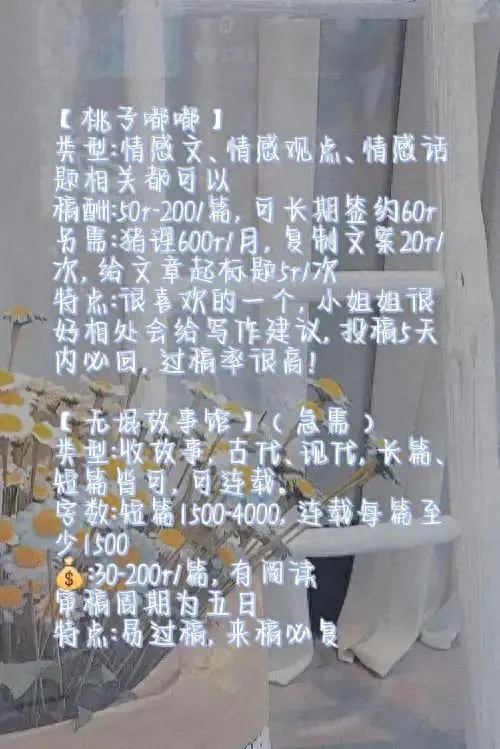 【桃子嘟嘟】
类型:情感文、情感观点、情感话
题相关都可以
稿酬:50r-200/篇, 可长期签约60r
另需:猪理600r/月, 复制文案20r/
次, 给文章起标题5r/次
特点:很喜欢的一个, 小姐姐很
好相处会给写作建议, 投稿5天
内必回, 过稿率很高!
【无垠故事馆】( 急需 )
类型:收故事, 古代、现代, 长篇、
短篇皆可, 可连载。
字数:短篇1500-4000, 连载每篇至
少1500
💰:30-200r/篇, 有阅读
审稿周期为五日
特点:易过稿, 来稿必复